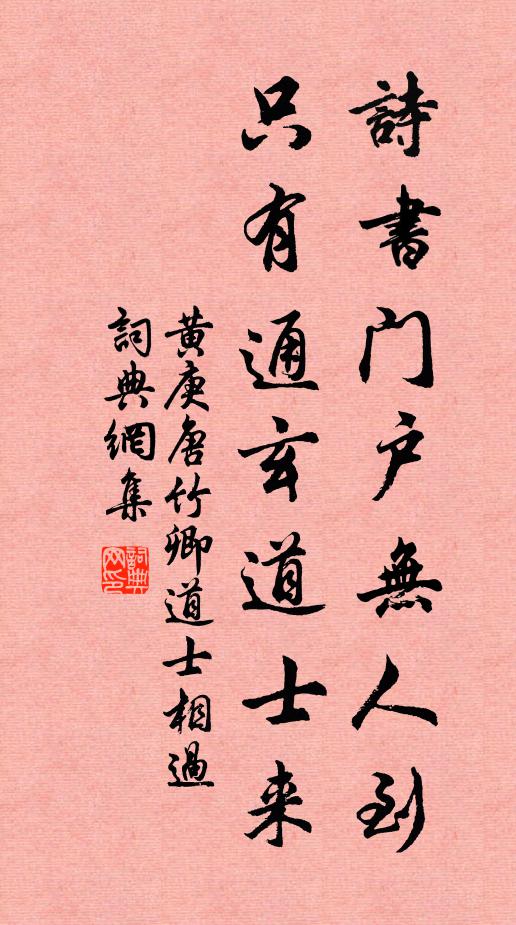 詩書门户無人到
只有通玄道士来
黄庚唐竹卿道士相過
詞典網集
詞典网印